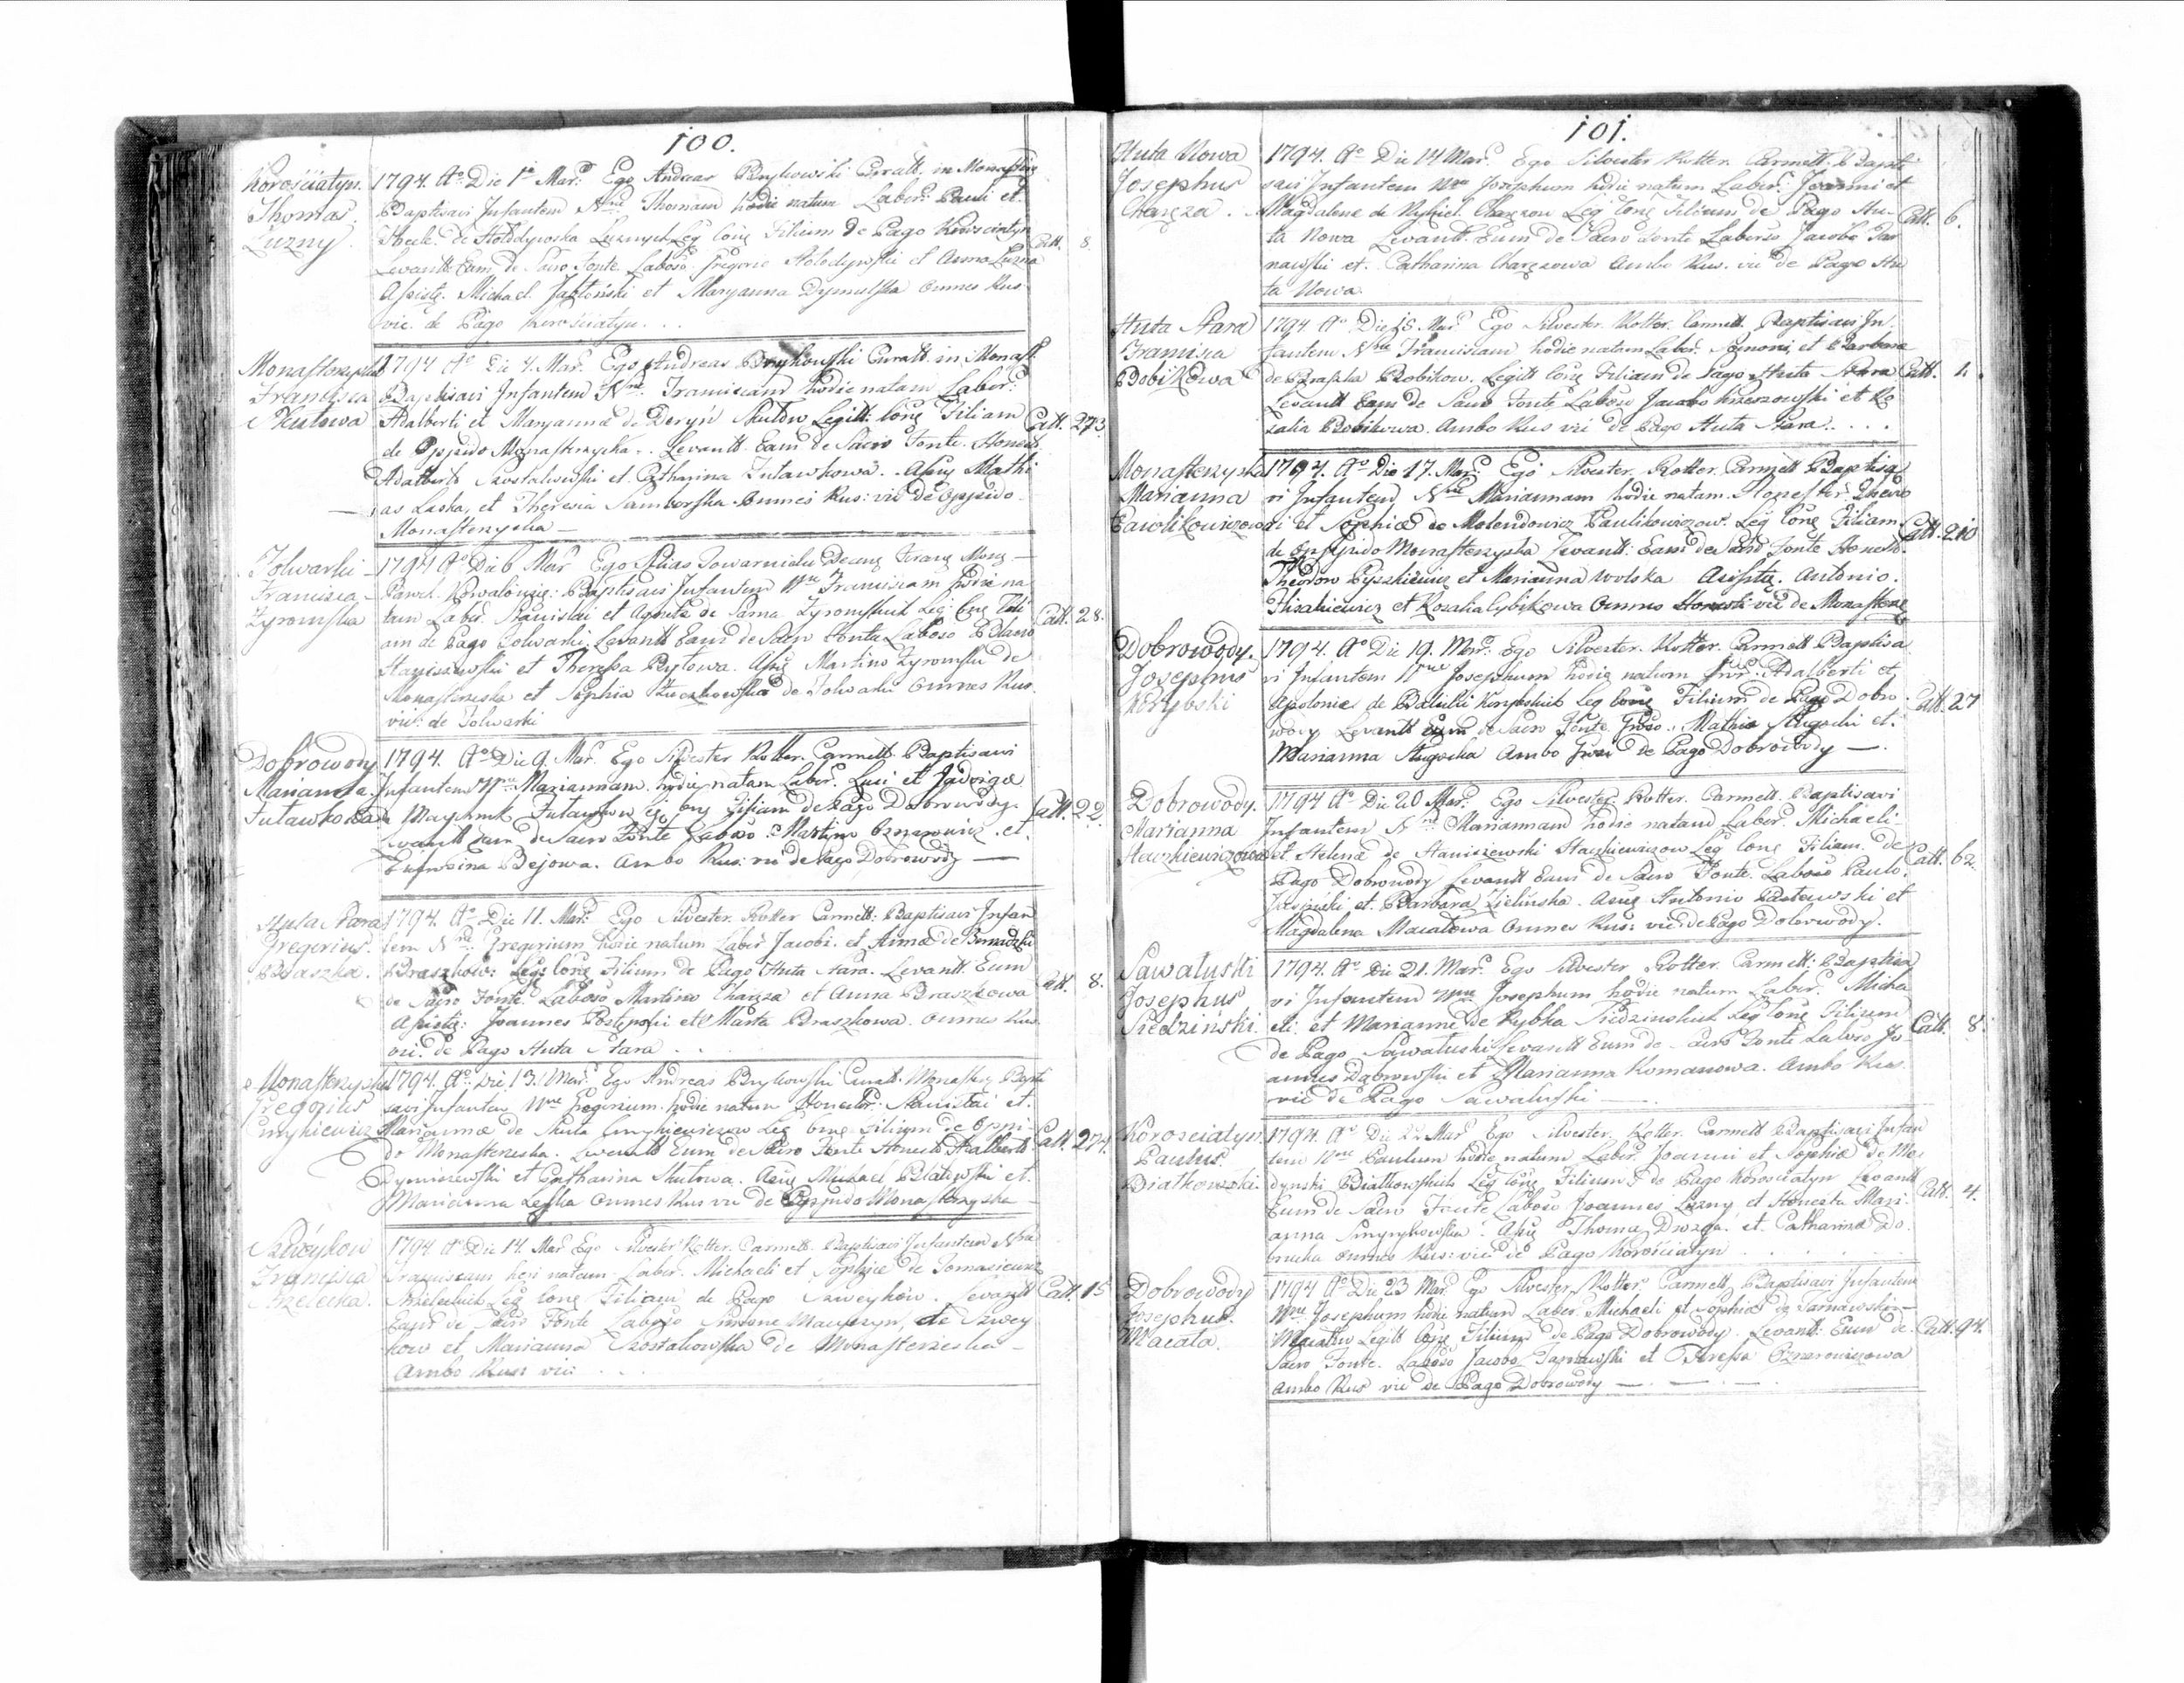 100.
Korościatyn.
Thomas
Luzny.
1794. Aº Die 1ª Mar: Ego Andreas Brykowski Curatt. in Monastirz
Baptisavi Infantem Nne Thomam hodie natum Labor: Pauli et
de Hołodywska Luznych Leg Conę Filium de Pago Korosciatyn
Levantt Eum de Sacro Fonte Laboso Gregorio Hołodywski et Anna Luzna
Assistę. Michael Jabłoński et Maryanna Dymulska omnes Rus
vic. de Pago Korosciatyn. . .
Catt. 8.
Monasterzyska
Francisca
Skutowa
1794 Aº Die 4. Mar. Ego Andreas Brykowski Curatt. in Monast
Baptisavi Infantem Nne. Franciscam hodie natam Labor:
Adalberti et Maryannæ de Deryń Skutow Legitt: Conę Filiam
de Oppido Monasterzyska. Levantt Eam de Sacro Fonte. Honest
Adalberto et Catharina Zutawkowa. Assię Mathi
as Laska, et Theresia Samborska omnes Rus: vic de Oppido
Monasterzyska
Catt. 273
Folwarki
Francisca
Zyromska
1794 Aº Die 6 Mar Ego
Baptisavi Infantem Nne Franciscam hodie na
tam Labor. Stanislai et Agnete de Sama Zyromskich Leg: Conę Fili
am de Pago Folwarki Levantt Eam de Sacro Fonte Laboso
Staniszewski et Theressa Bytowa. Assię Martino Zyromski de
Monasterzeska et Sophia de Folwarki omnes Rus.
vic: de Folwarki
Catt. 28.
Dobrowody
Marianna
Futawkowa
1794. Aº Die 9. Mar. Ego Silvester Rotter. Carmett. Baptisavi
Infantem Nne Mariannam hodie natam Labor. Luci et Jadvigæ
Futawkow Leg Conę Filiam de Pago Dobrowody.
Levantt Eam de Sacro Fonte Laboso Martino Oznarowicz et
Eufrosina Bejowa. Ambo Rus: vic de Pago Dobrowody
Catt. 22.
Huta Stara
Gregorius
Braszka.
1794. Aº Die 11. Mar: Ego Silvester Rotter Carmett: Baptisavi Infan
tem Nne. Gregorium hodie natum Labor Jacobi. et Annæ de
Braszkow: Leg: Conę Filium de Pago Huta Stara. Levantt. Eum
de Sacro Fonte Laboso Martino Charęza et Anna Braszkowa
Assistę: Joannes et Marta Braszkowa. Omnes Rus.
vic. de Pago Huta Stara . . .
Catt. 8.
Monasterzyska
Gregorius
1794. Aº Die 13. Mar: Ego Andreas Brykowski Curatt. Monasterz Bapti
savi Infantem Nne Gregorium hodie natum Honestor: Stanislai et
Mariannæ de Skuta Leg Conę Filium de Oppi
do Monasterzeska. Levantt Eum de Sacro Fonte Honesto Adalberto
et Catharina Skutowa. Assię Michael et
Marianna Leska omnes Rus vic de Oppido Monasterzyska
Catt. 274.
Szweykow
Francisca
Strzelecka.
1794 Aº Die 14. Mar Ego Silvester Rotter. Carmett. Baptisavi Infantem Nne
Franciscam heri natam Labor. Michaeli et Sophiæ de Tomasiewicz
Strzeleckich Leg Conę Filiam de Pago Szweykow. Levantt
Eam de Sacro Fonte Laboso Simone de Szwey
kow et Marianna Szostakowska de Monasterzeska
Ambo Rus: vic: . . .
Catt. 15
101.
Huta Nowa
Josephus
Charęza.
1794. Aº Die 14 Mar: Ego Silvester Rotter. Carmett. Bapti
savi Infantem Nne Josephum hodie natum Labor: Joanni et
Magdalene de Charęzow Leg Conę Filium de Pago Hu
ta Nowa Levantt. Eum de Sacro Fonte Laboso Jacobo Tar
nawski et. Catharina Charęzowa Ambo Rus. vic de Pago Hu
ta Nowa.
Catt. 6.
Huta Stara
Francisca
Bobikowa
1794 Aº Die 15. Mar Ego Silvester. Rotter. Carmett. Baptisavi In
fantem Nne Franciscam hodie natam Labor. Simoni, et Barbaræ
de Braszka Bobikow. Legitt Conę Filiam de Pago Huta Stara
Levantt Eam de Sacro Fonte Laboso Jacobo et Ro
zalia Bobikowa. Ambo Rus vic de Pago Huta Stara. . . .
Catt. 1.
Monasterzyska
Marianna
Pawlikowiczowa
1794. Aº Die 17. Mar: Ego Silvester. Rotter. Carmett Baptisa
vi Infantem Nne Mariannam hodie natam. Honestor. Theodo
ri et Sophiæ de Melendowicz Paulikowiczow. Leg Conę Filiam
de Oppido Monasterzyska Levantt: Eam de Sacro Fonte Honesto.
Theodoro Pyszkiewicz et Marianna Wolska Assistę. Antonio.
et Rosalia Cybikowa Omnes Honesti vic de Monasterz
Catt. 210
Dobrowody.
Josephus
Korybski
1794. Aº Die 19. Mar: Ego Silvester. Rotter. Carmett Baptisa
vi Infantem Nne Josephum hodie natum Adalberti et
Apoloniæ de Balicki Korybskich Leg Conę Filium de Pago Dobro
wody Levantt Eum de Sacro Fonte Mathia et
Marianna Ambo de Pago Dobrowody —.
Catt. 27
Dobrowody.
Marianna
Staszkiewiczowa
1794 Aº Die 20 Mar: Ego Silvester. Rotter. Carmett. Baptisavi
Infantem Nne Mariannam hodie natam Labor. Michaeli
et Helenæ de Staniszewski Staszkiewiczow Leg Conę Filiam. de
Pago Dobrowody Levantt Eam de Sacro Fonte. Laboso Paulo.
et. Barbara Zielinska. Assię Antonio et
Magdalena Macatowa Omnes Rus: vic: de Pago Dobrowody.
Catt. 62.
Sawaluski
Josephus
Siedziński
1794. Aº Die 21. Mar: Ego Silvester Rotter. Carmett: Baptisa
vi Infantem Nne Josephum hodie natum Labor. Micha
eli. et Mariannę de Rybka Siedzinskich Leg Conę Filium
de Pago Sawaluski Levantt Eum de Sacro Fonte Laboso Jo
annes Dąbrowski et Marianna Romanowa. Ambo Rus.
vic de Pago Sawaluski —.
Catt. 8.
Korosciatyn.
Paulus.
Białkowski
1794. Aº Die 22 Mar Ego Silvester. Rotter. Carmett Baptisavi Infan
tem Nne Paulum hodie natum Labor. Joanni et Sophiæ de Me
dynski Białkowskich Leg Conę Filium de Pago Korosciatyn Levantt
Eum de Sacro Fonte Laboso Joannes Luzny, et Honesta Mari
anna Assię Thoma Drozda. et. Catharina Do
omnes Rus: vic: de Pago Korościatyn . . . .
Catt. 4.
Dobrowody
Josephus.
Macata.
1794 Aº Die 23 Mar. Ego Silvester Rotter. Carmett, Baptisavi Infantem
Nne Josephum hodie natum Labor. Michaeli et Sophiæ de Tarnawskin
Macatow Legitt Conę Filium de Pago Dobrowody. Levantt. Eum de.
Sacro Fonte. Laboso Jacobo Tarnawski et Teressa Oznarowiczowa
Ambo Rus vic de Pago Dobrowody — . —
Catt. 94.